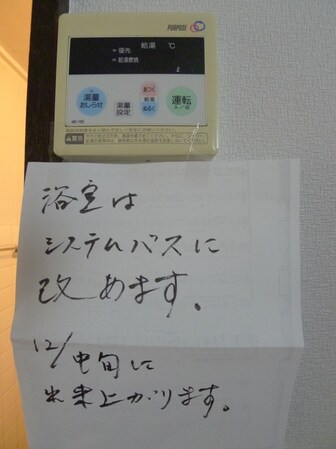 PURPOSE
給湯 ℃
優先
給湯燃焼
湯量
おしらせ
湯量
設定
あつく
給湯
ぬるく
運転
入/切
浴室は
システムバスに
改めます。
12/中旬に
出来上がります。